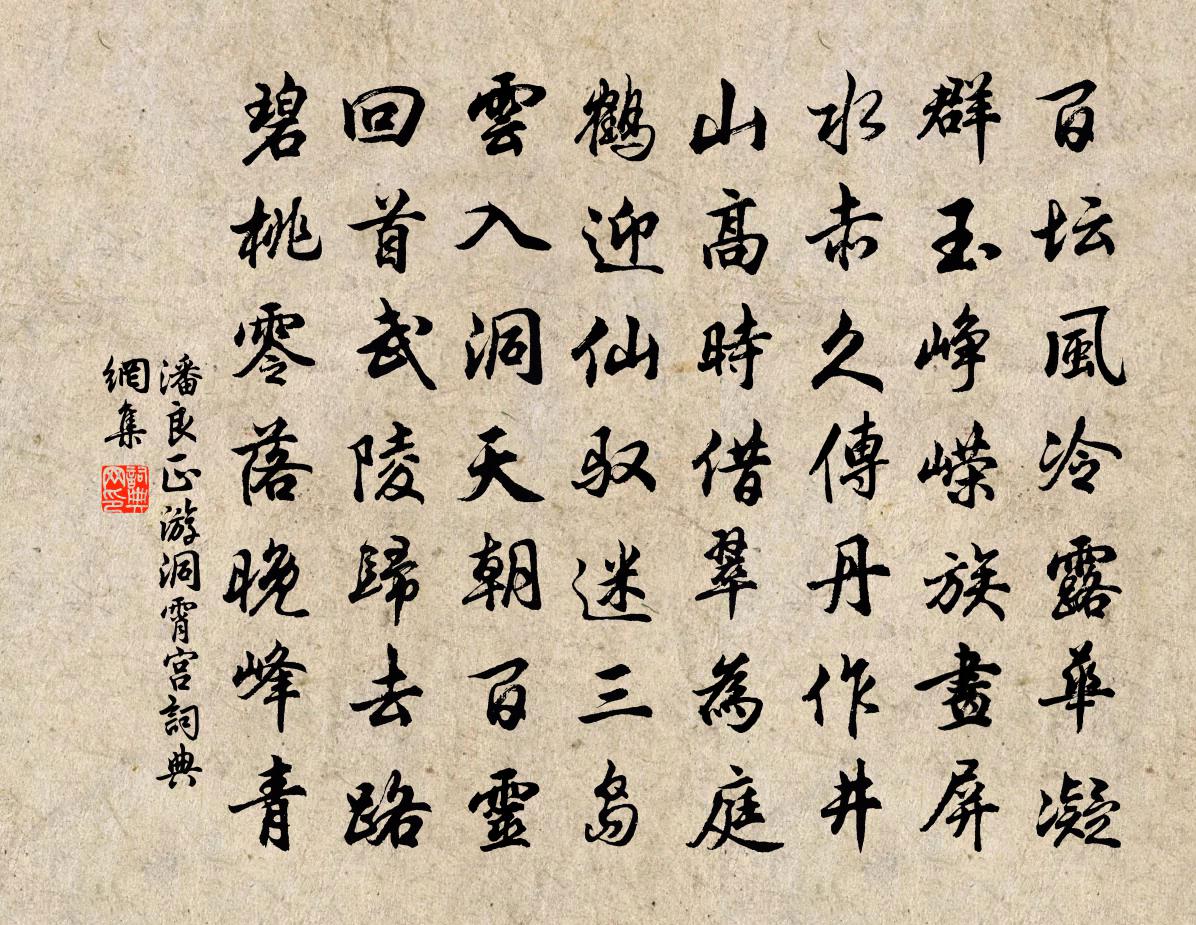 百坛風冷露華凝
群玉峥嵘族畫屏
水赤久傳丹作井
山高時借翠為庭
鶴迎仙驭迷三岛
雲入洞天朝百靈
回首武陵歸去路
碧桃零落晚峰青
潘良正游洞霄宫詞典
網集
詞典
网印